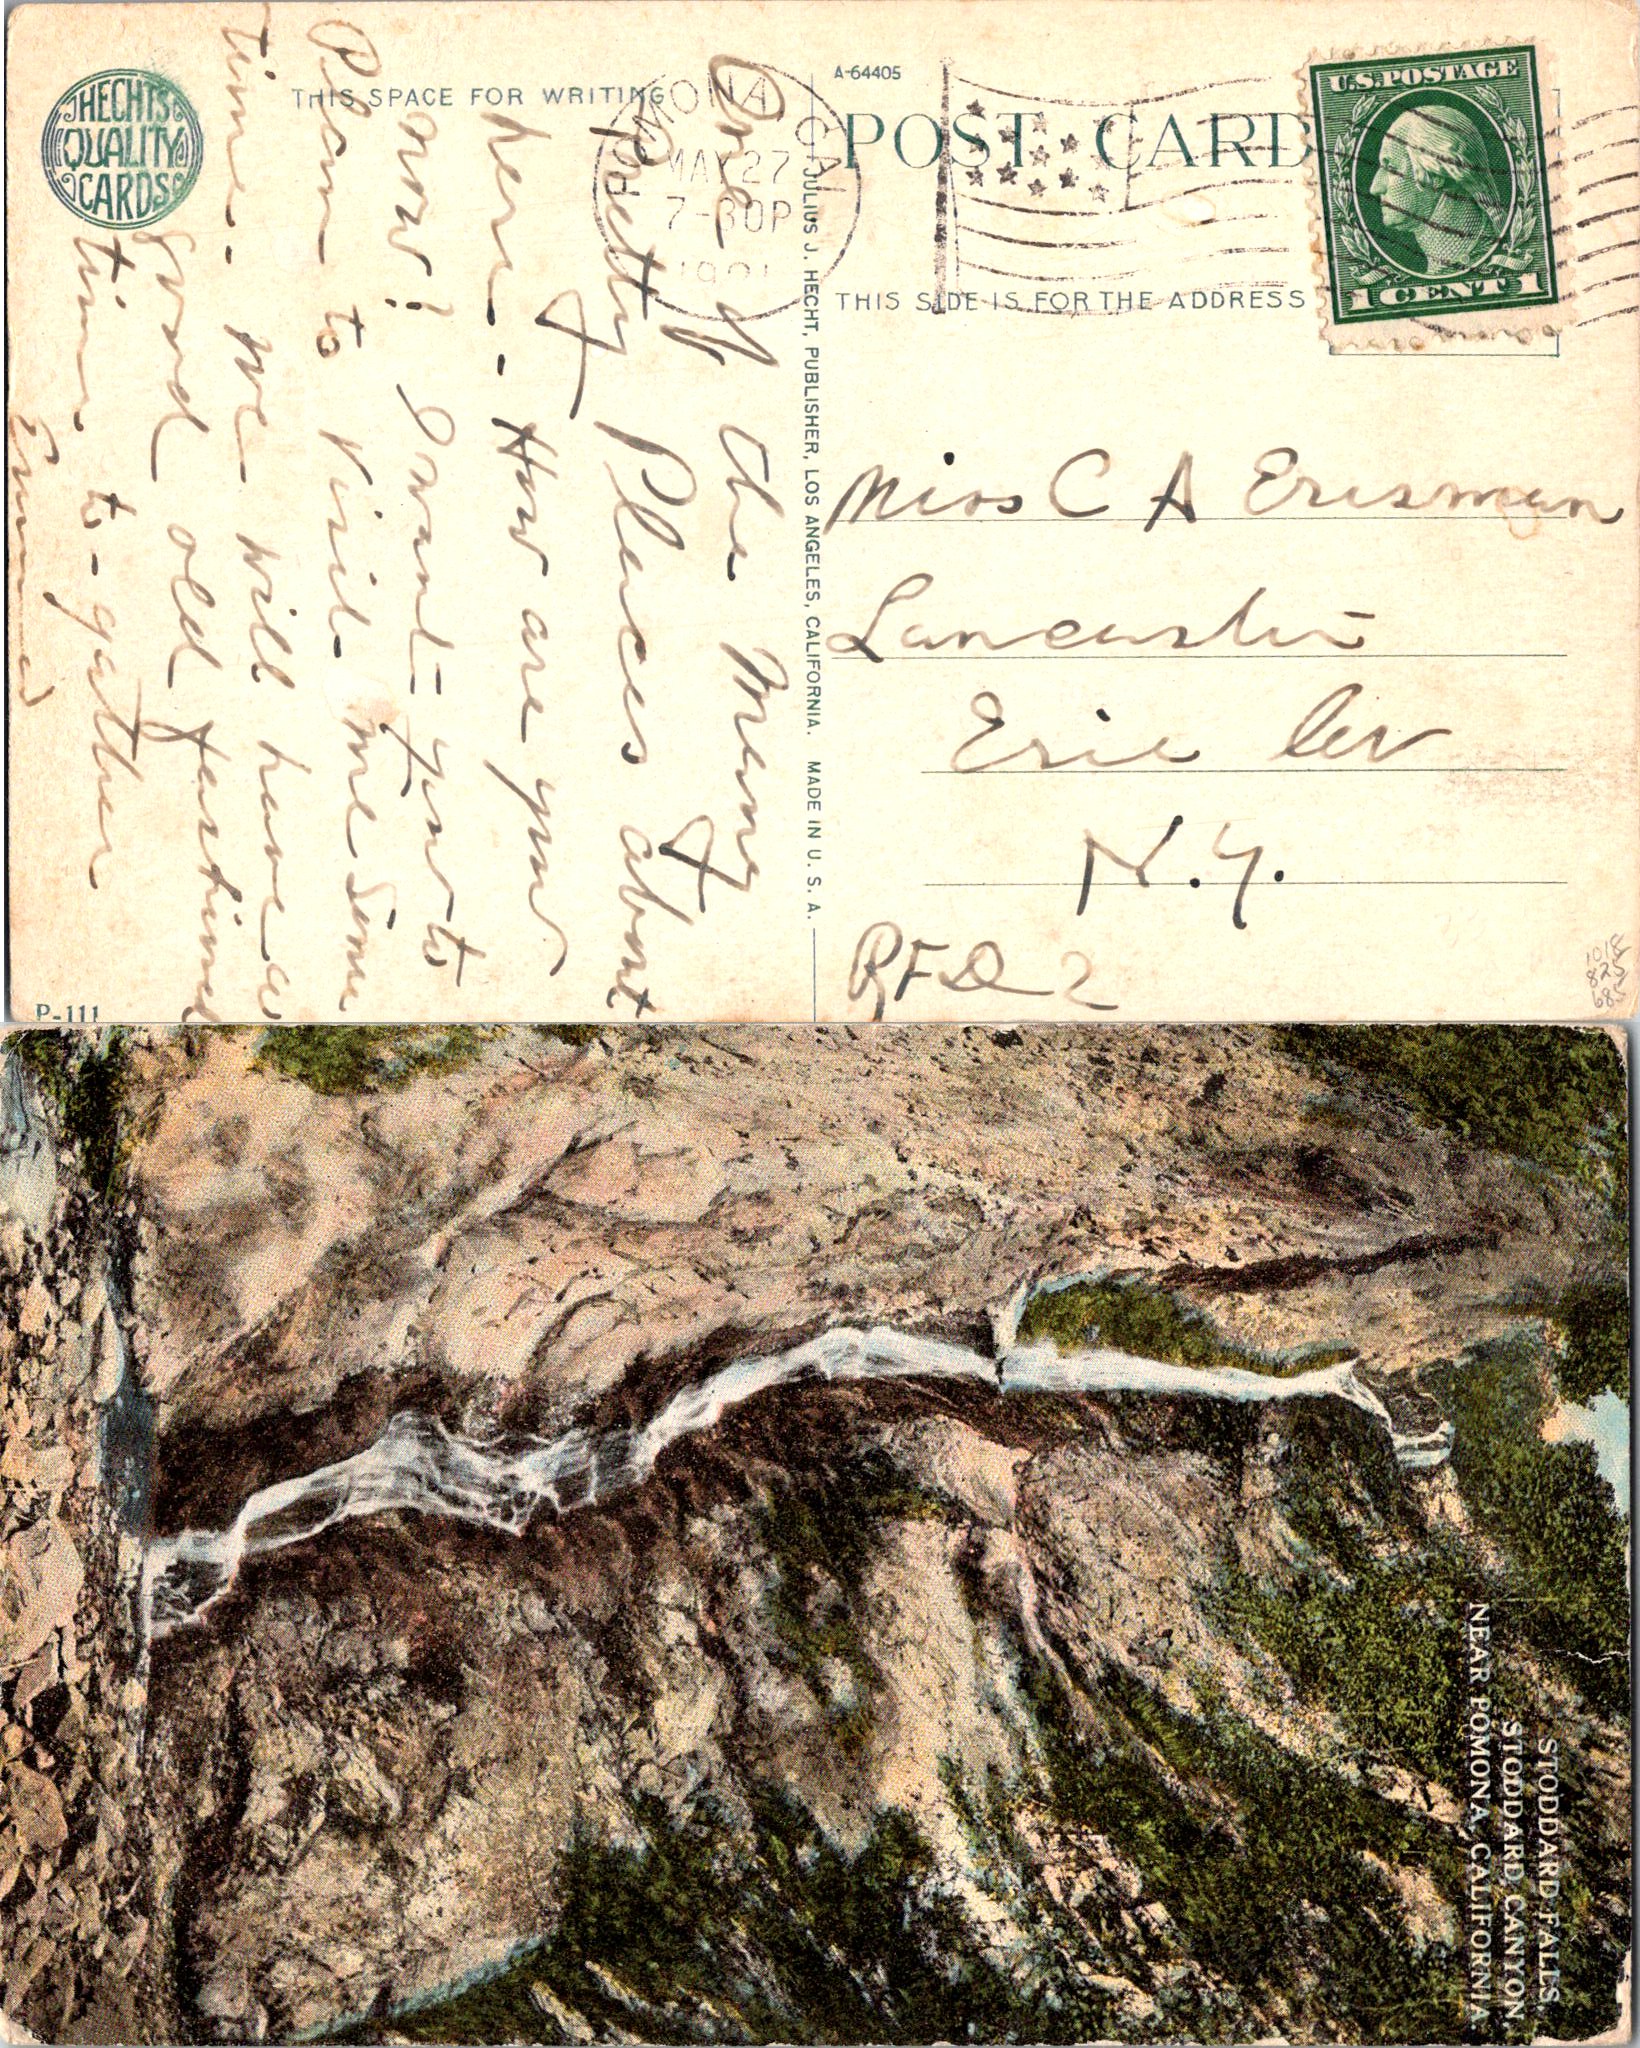 HECHTS
QUALITY
CARDS
THIS SPACE FOR WRITING
A-64405
POST CARD
THIS SIDE IS FOR THE ADDRESS
U.S. POSTAGE
1 CENT 1
POMONA CAL
MAY 27
7-30P
JULIUS J. HECHT, PUBLISHER, LOS ANGELES, CALIFORNIA. MADE IN U. S. A.
One of the many
pretty Places about
here. - How are you
now? I want you to
Plan to visit me some
time. we will have a
good old fashioned
time to-gather
Emma
Miss C A Erisman
Lancaster
Erie Co
N.Y.
RFD 2
1018
825
685
P-111
STODDARD FALLS,
STODDARD CANYON,
NEAR POMONA, CALIFORNIA